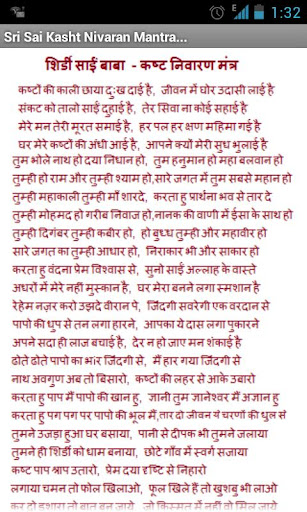 1:32
Sri Sai Kasht Nivaran Mantra...
शिर्डी साईं बाबा - कष्ट निवारण मंत्र
कष्टों की काली छाया दुःख दाई है, जीवन में घोर उदासी लाई है
संकट को तालो साईं दुहाई है, तेर सिवा ना कोई सहाई है
मेरे मन तेरी मूरत समाई है, हर पल हर क्षण महिमा गई है
घर मेरे कष्टों की अंधी आई है, आपने क्यों मेरी सुध भुलाई है
तुम भोले नाथ हो दया निधान हो, तुम हनुमान हो महा बलवान हो
तुम्ही हो राम और तुम्ही श्याम हो,सारे जगत में तुम सबसे महान हो
तुम्ही महाकाली तुम्ही माँ शारदे, करता हु प्रार्थना भव से तार दे
तुम्ही मोहमद हो गरीब निवाज हो,नानक की वाणी में ईसा के साथ हो
तुम्ही दिगंबर तुम्ही कबीर हो, हो बुध्ध तुम्ही और महावीर हो
सारे जगत का तुम्ही आधार हो, निराकार भी और साकार हो
करता हु वंदना प्रेम विश्वास से, सुनो साईं अल्लाह के वास्ते
अधरों में मेरे नहीं मुस्कान है, घर मेरा बनने लगा स्मशान है
रेहेम नज़र करो उझदे वीरान पे, जिंदगी सवरेगी एक वरदान से
पापो की धुप से तन लगा हारने, आपका ये दास लगा पुकारने
अपने सदा ही लाज बचाई है, देर न हो जाए मन शंकाई है
ढोते ढोते पापो का भार जिंदगी से, मैं हार गया जिंदगी से
नाथ अवगुण अब तो बिसारो, कष्टों की लहर से आके उबारो
करता हु पाप मैं पापो की खान हु, ज्ञानी तुम ज्ञानेश्वर मैं अज्ञान हु
करता हु पग पग पर पापो की भूल मैं,तार दो जीवन ये चरणों की धुल से
तुमने उजड़ा हुआ घर बसाया, पानी से दीपक भी तुमने जलाया
तुमने ही शिर्डी को धाम बनाया, छोटे गाँव में स्वर्ग सजाया
कष्ट पाप श्राप उतारो, प्रेम दया दृष्टि से निहारो
लगाया चमन तो फोल खिलाओ, फूल खिले हैं तो खुशबु भी लाओ
कर दो इशारा तो बात बन जाये, जो किस्मत में नहीं वो मिल जाये